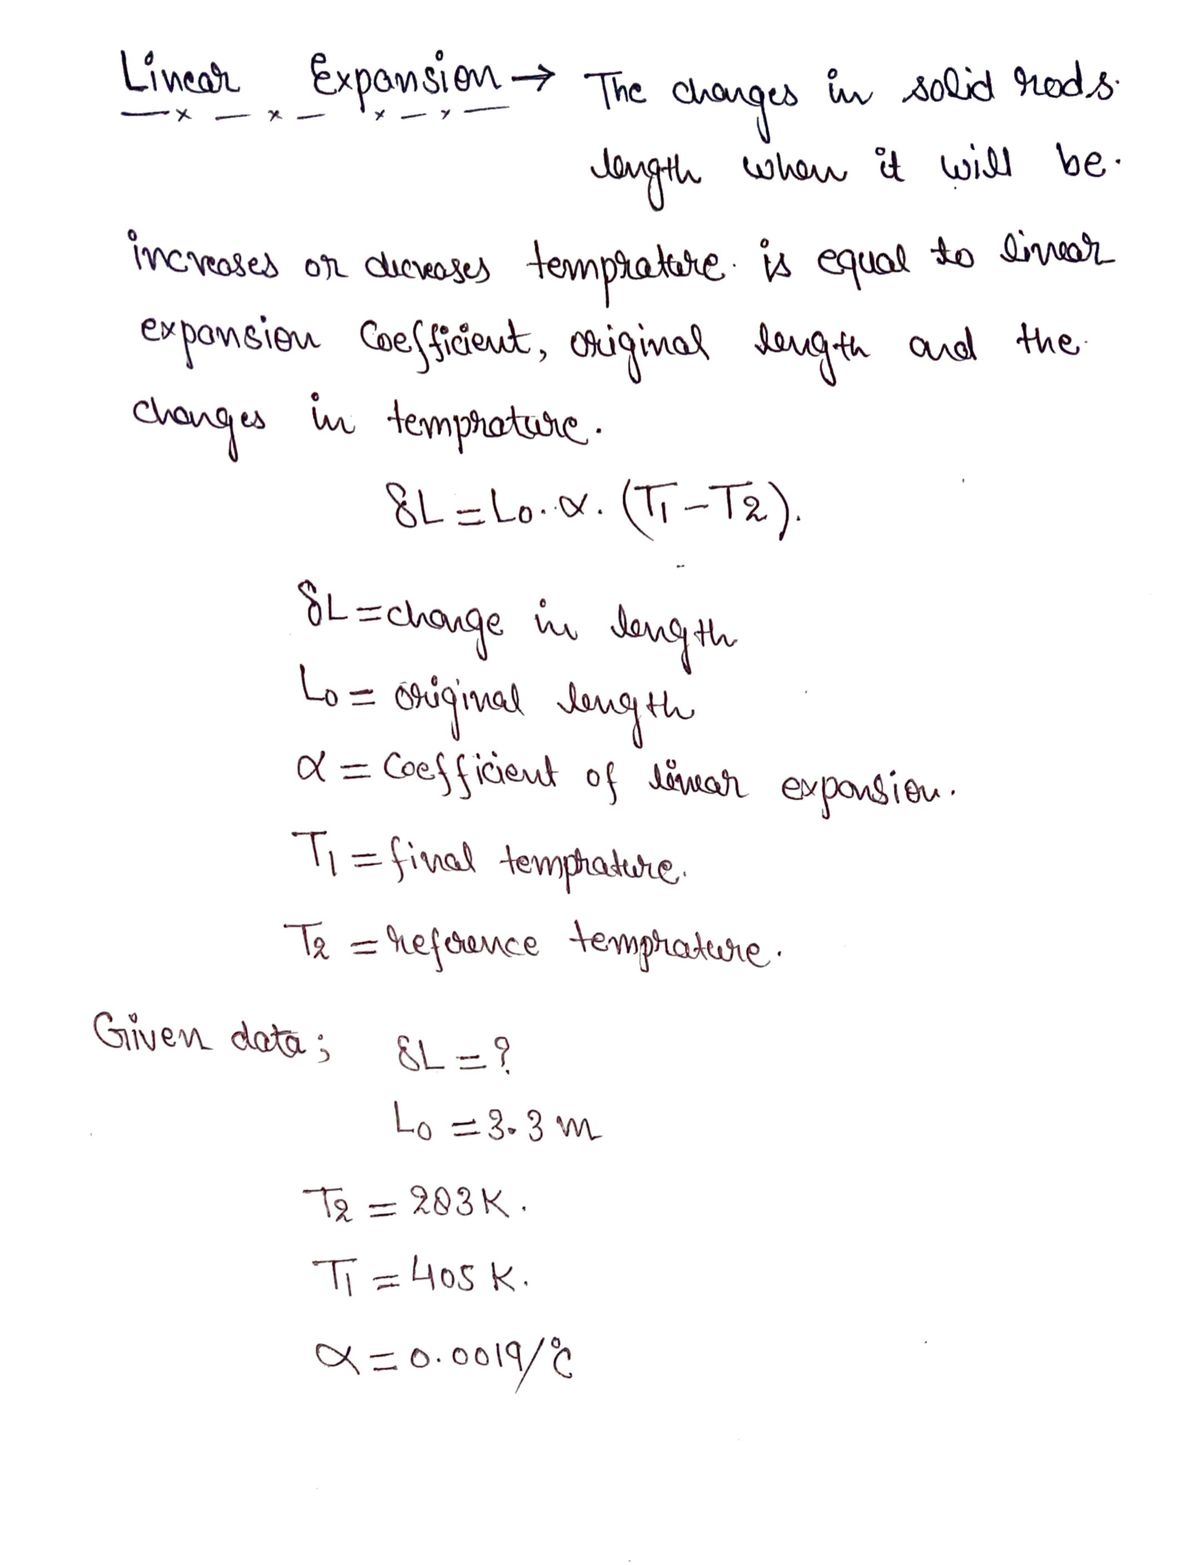 Linear Expansion → The changes in solid rods.
length when it will be.
increases or dicreases temprature. is equal to linear
expansion Coefficient, original length and the.
changes in temprature.
δL = L0 . α . (T1 - T2).
δL = change in length
L0 = original length
α = Coefficient of linear expansion.
T1 = final temprature.
T2 = reference temprature.
Given data ; δL = ?
L0 = 3.3 m
T2 = 283 K.
T1 = 405 K.
α = 0.0019/°C